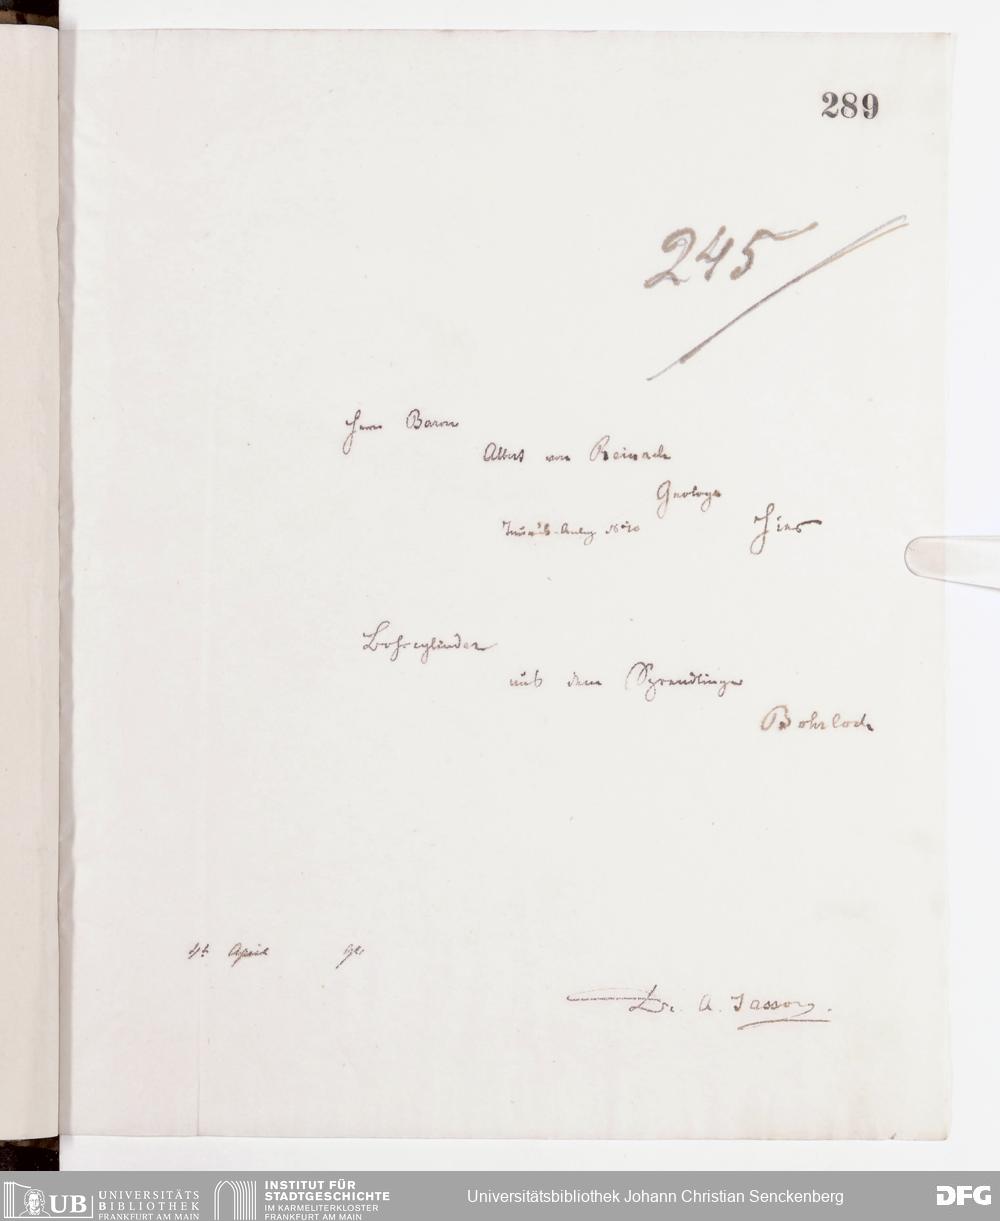 289
245
Herrn Baron
Albert von Reinach
Geologe
Hier
Taunus-Anlag No 10
Bohrcylinder
aus dem Sprendlinger
Bohrloch
4t April
Dr. A.
UB UNIVERSITÄTS
BIBLIOTHEK
FRANKFURT AM MAIN
INSTITUT FÜR
STADTGESCHICHTE
IM KARMELITERKLOSTER
FRANKFURT AM MAIN
Universitätsbibliothek Johann Christian Senckenberg
DFG